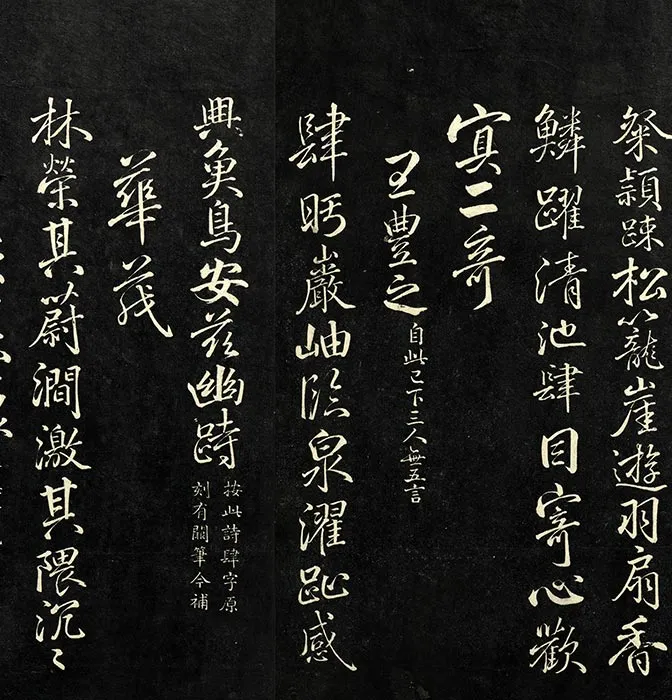 粲穎疎松籠崖遊羽扇香
鱗躍清池肆目寄心歡
冥二奇
王豐之 自此已下三人無五言
肆眄巖岫臨泉濯趾感
興魚鳥安茲幽跱
按此詩肆字原
刻有闕筆今補
華茂
林榮其蔚澗激其隈沉〻